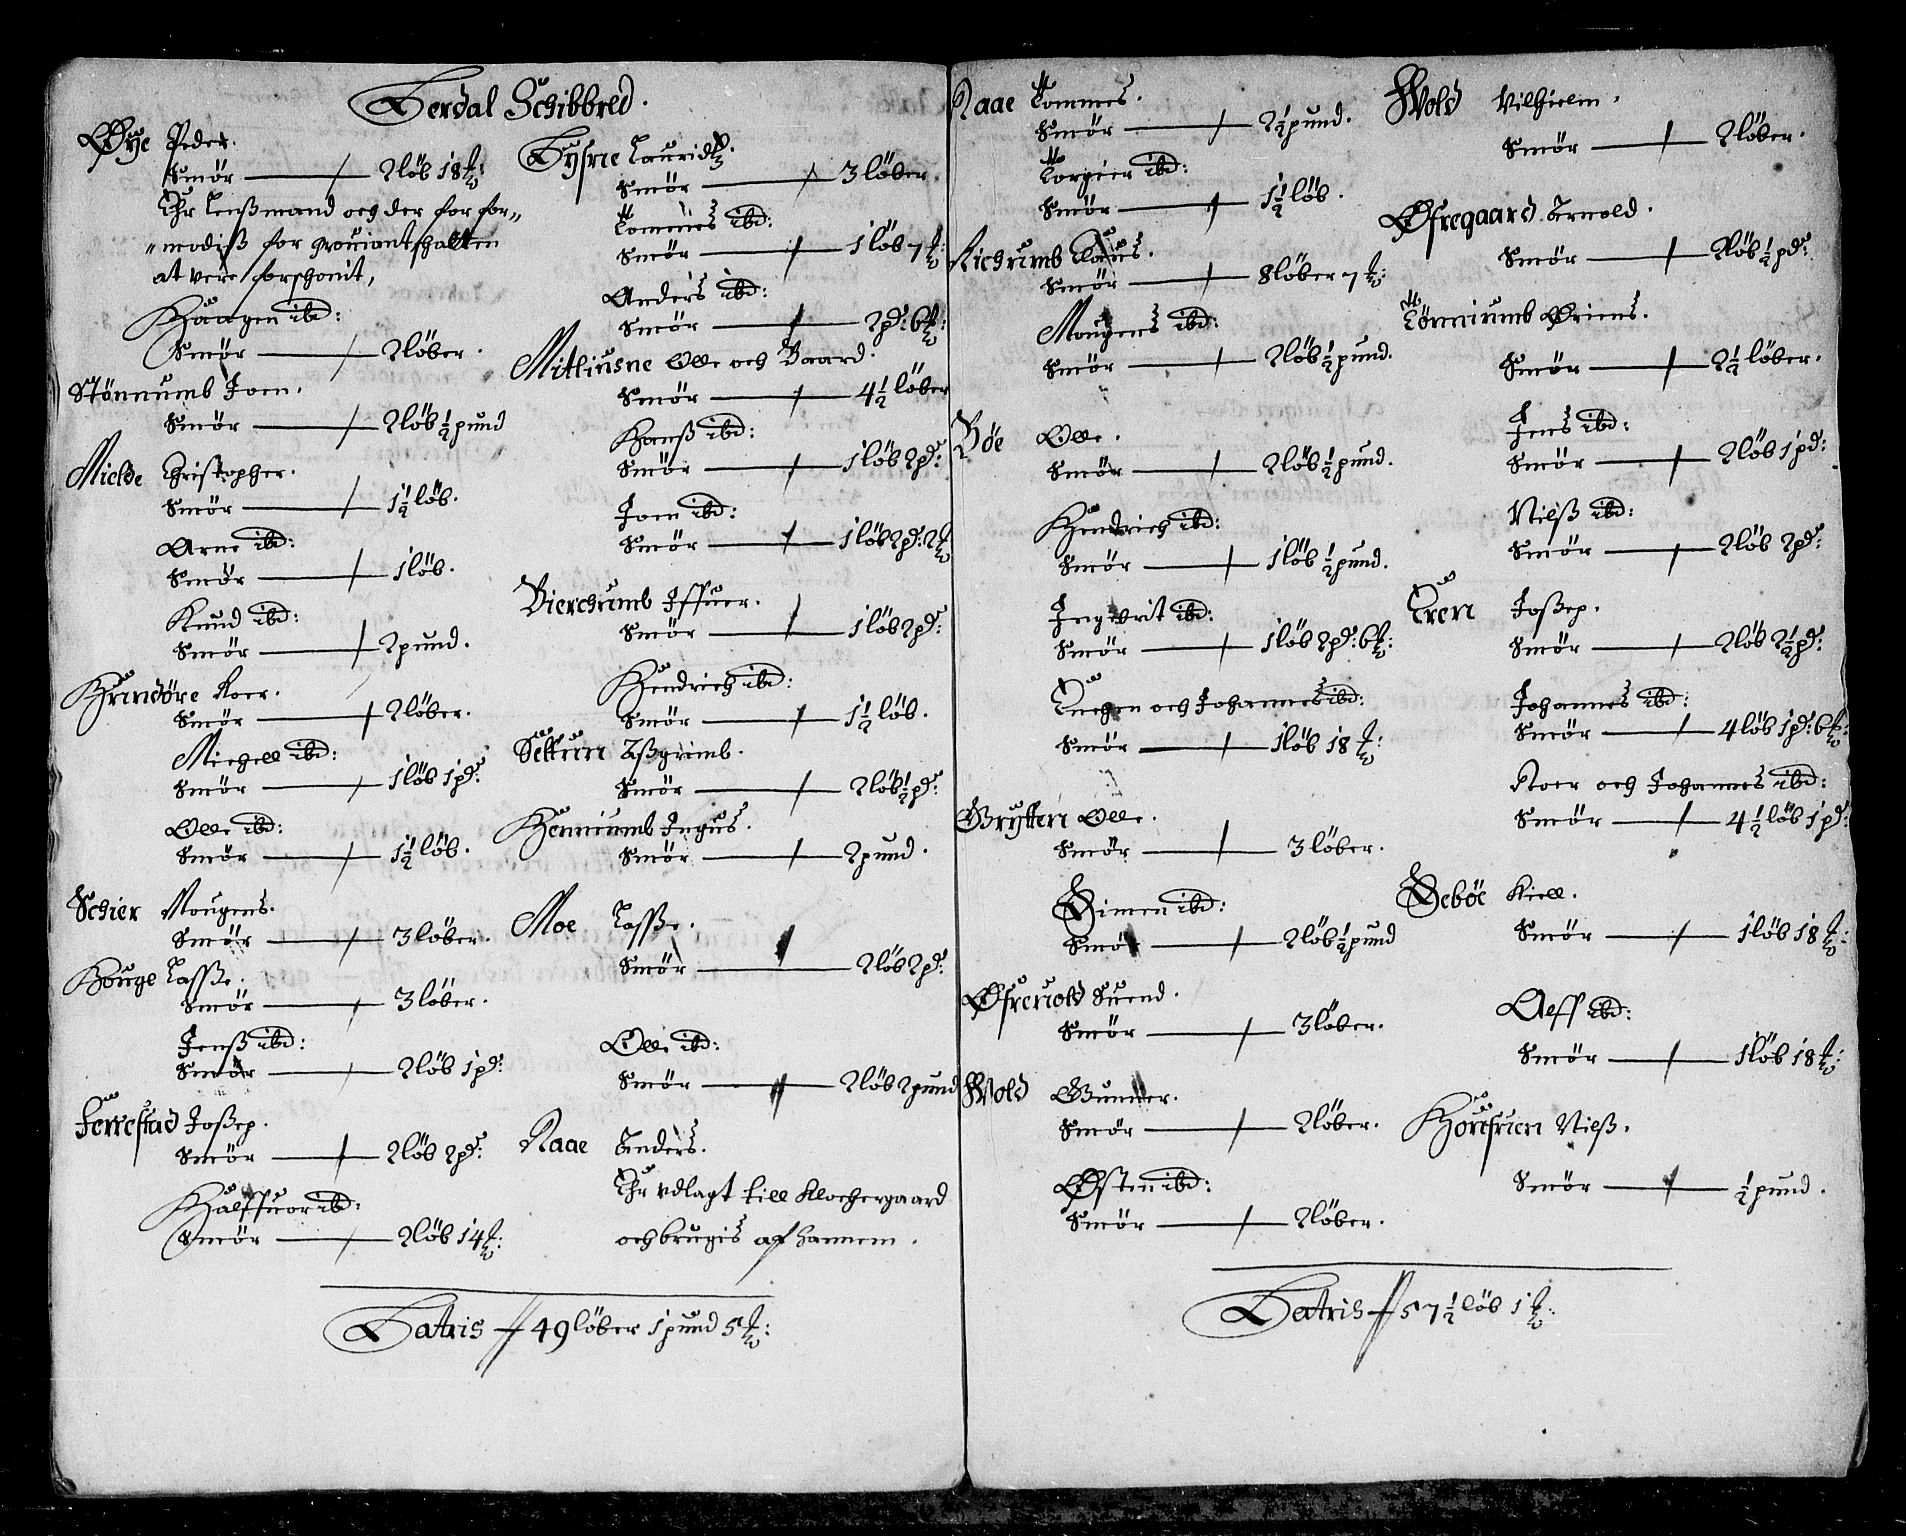 Lerdal Schibbred.
Øye Peder.
Smör — 2löb 18 ℔:
Ehr Lenßmand och der for for-
modiß for prouiantshalten
at vere forschonit,
Haagen ibd:
Smör — 2löber.
Stönnumb Joen.
Smör — 2löb ½ pund
Mielde Christopher.
Smör — 1½ löb.
Arne ibd:
Smör — 1löb.
Knud ibd:
Smör — 2pund.
Hrindöre Roer.
Smör — 2löber.
Michell ibd:
Smör — 1löb 1pd:
Olle ibd:
Smör — 1½ löb.
Schier Mougens.
Smör — 3löber.
Houge Lasße.
Smör — 3löber.
Jenß ibd:
Smör — 2löb 1pd:
Ferrestad Joßep.
Smör — 2löb 2pd:
Halffuor ibd:
Smör — 2löb 14 ℔:
Lysne Lauridtz.
Smör — 3löber.
Tommes ibd:
Smör — 1löb 7 ℔:
Anders ibd:
Smör — 2pd: 6 ℔:
Mitliusne Olle och Baard.
Smör — 4½ löber
Hanß ibd:
Smör — 1löb 2pd:
Joen ibd:
Smör — 1löb 2pd: 2 ℔
Bierchumb Iffuer.
Smör — 1löb 2pd:
Hendrich ibd:
Smör — 1½ löb.
Seltun Aßgrimb.
Smör — 2löb ½ pd:
Hemiumb Ingus.
Smör — 2pund.
Moe Lasße.
Smör — 2löb 2pd:
Olle ibd:
Smör — 2löb 2pund
Raae Anders.
Ehr vdlagt till Klochergaard
och brugis af hannem.
Latris 49 löber 1 pund 5 ℔:
Raae Tommes.
Smör — 2½ pund.
Torgier ibd:
Smör — 1½ löb.
Richumb Claus.
Smör — 8löber 7 ℔:
Mougens ibd:
Smör — 2löb ½ pund.
Böe Olle.
Smör — 2löb ½ pund.
Hendrich ibd:
Smör — 1löb ½ pund.
Ingebrit ibd:
Smör — 1löb 2pd: 6 ℔:
och Johannes ibd:
Smör — 1löb 18 ℔:
Grytten Olle.
Smör — 3löber.
Simen ibd:
Smör — 2löb ½ pund
Øfreuold Suend.
Smör — 3löber.
Wold Gunner.
Smör — 2löber.
Østen ibd:
Smör — 2löber.
Wold Vilhielm.
Smör — 2löber.
Øfregaard Arnold.
Smör — 2löb ½ pd:
Tönniumb
Smör — 2½ löber.
Jens ibd:
Smör — 2löb 1pd:
Nielß ibd:
Smör — 2löb 2pd:
Eren Joßep.
Smör — 2löb 2½ pd:
Johannes ibd:
Smör — 4löb 1pd: 6 ℔:
Roer och Johannes ibd:
Smör — 4½ löb 1pd:
Seböe Kiell.
Smör — 1löb 18 ℔:
Aeff ibd:
Smör — 1löb 18 ℔:
Nielß.
Smör — ½ pund.
Latris 57½ löb 1 ℔: